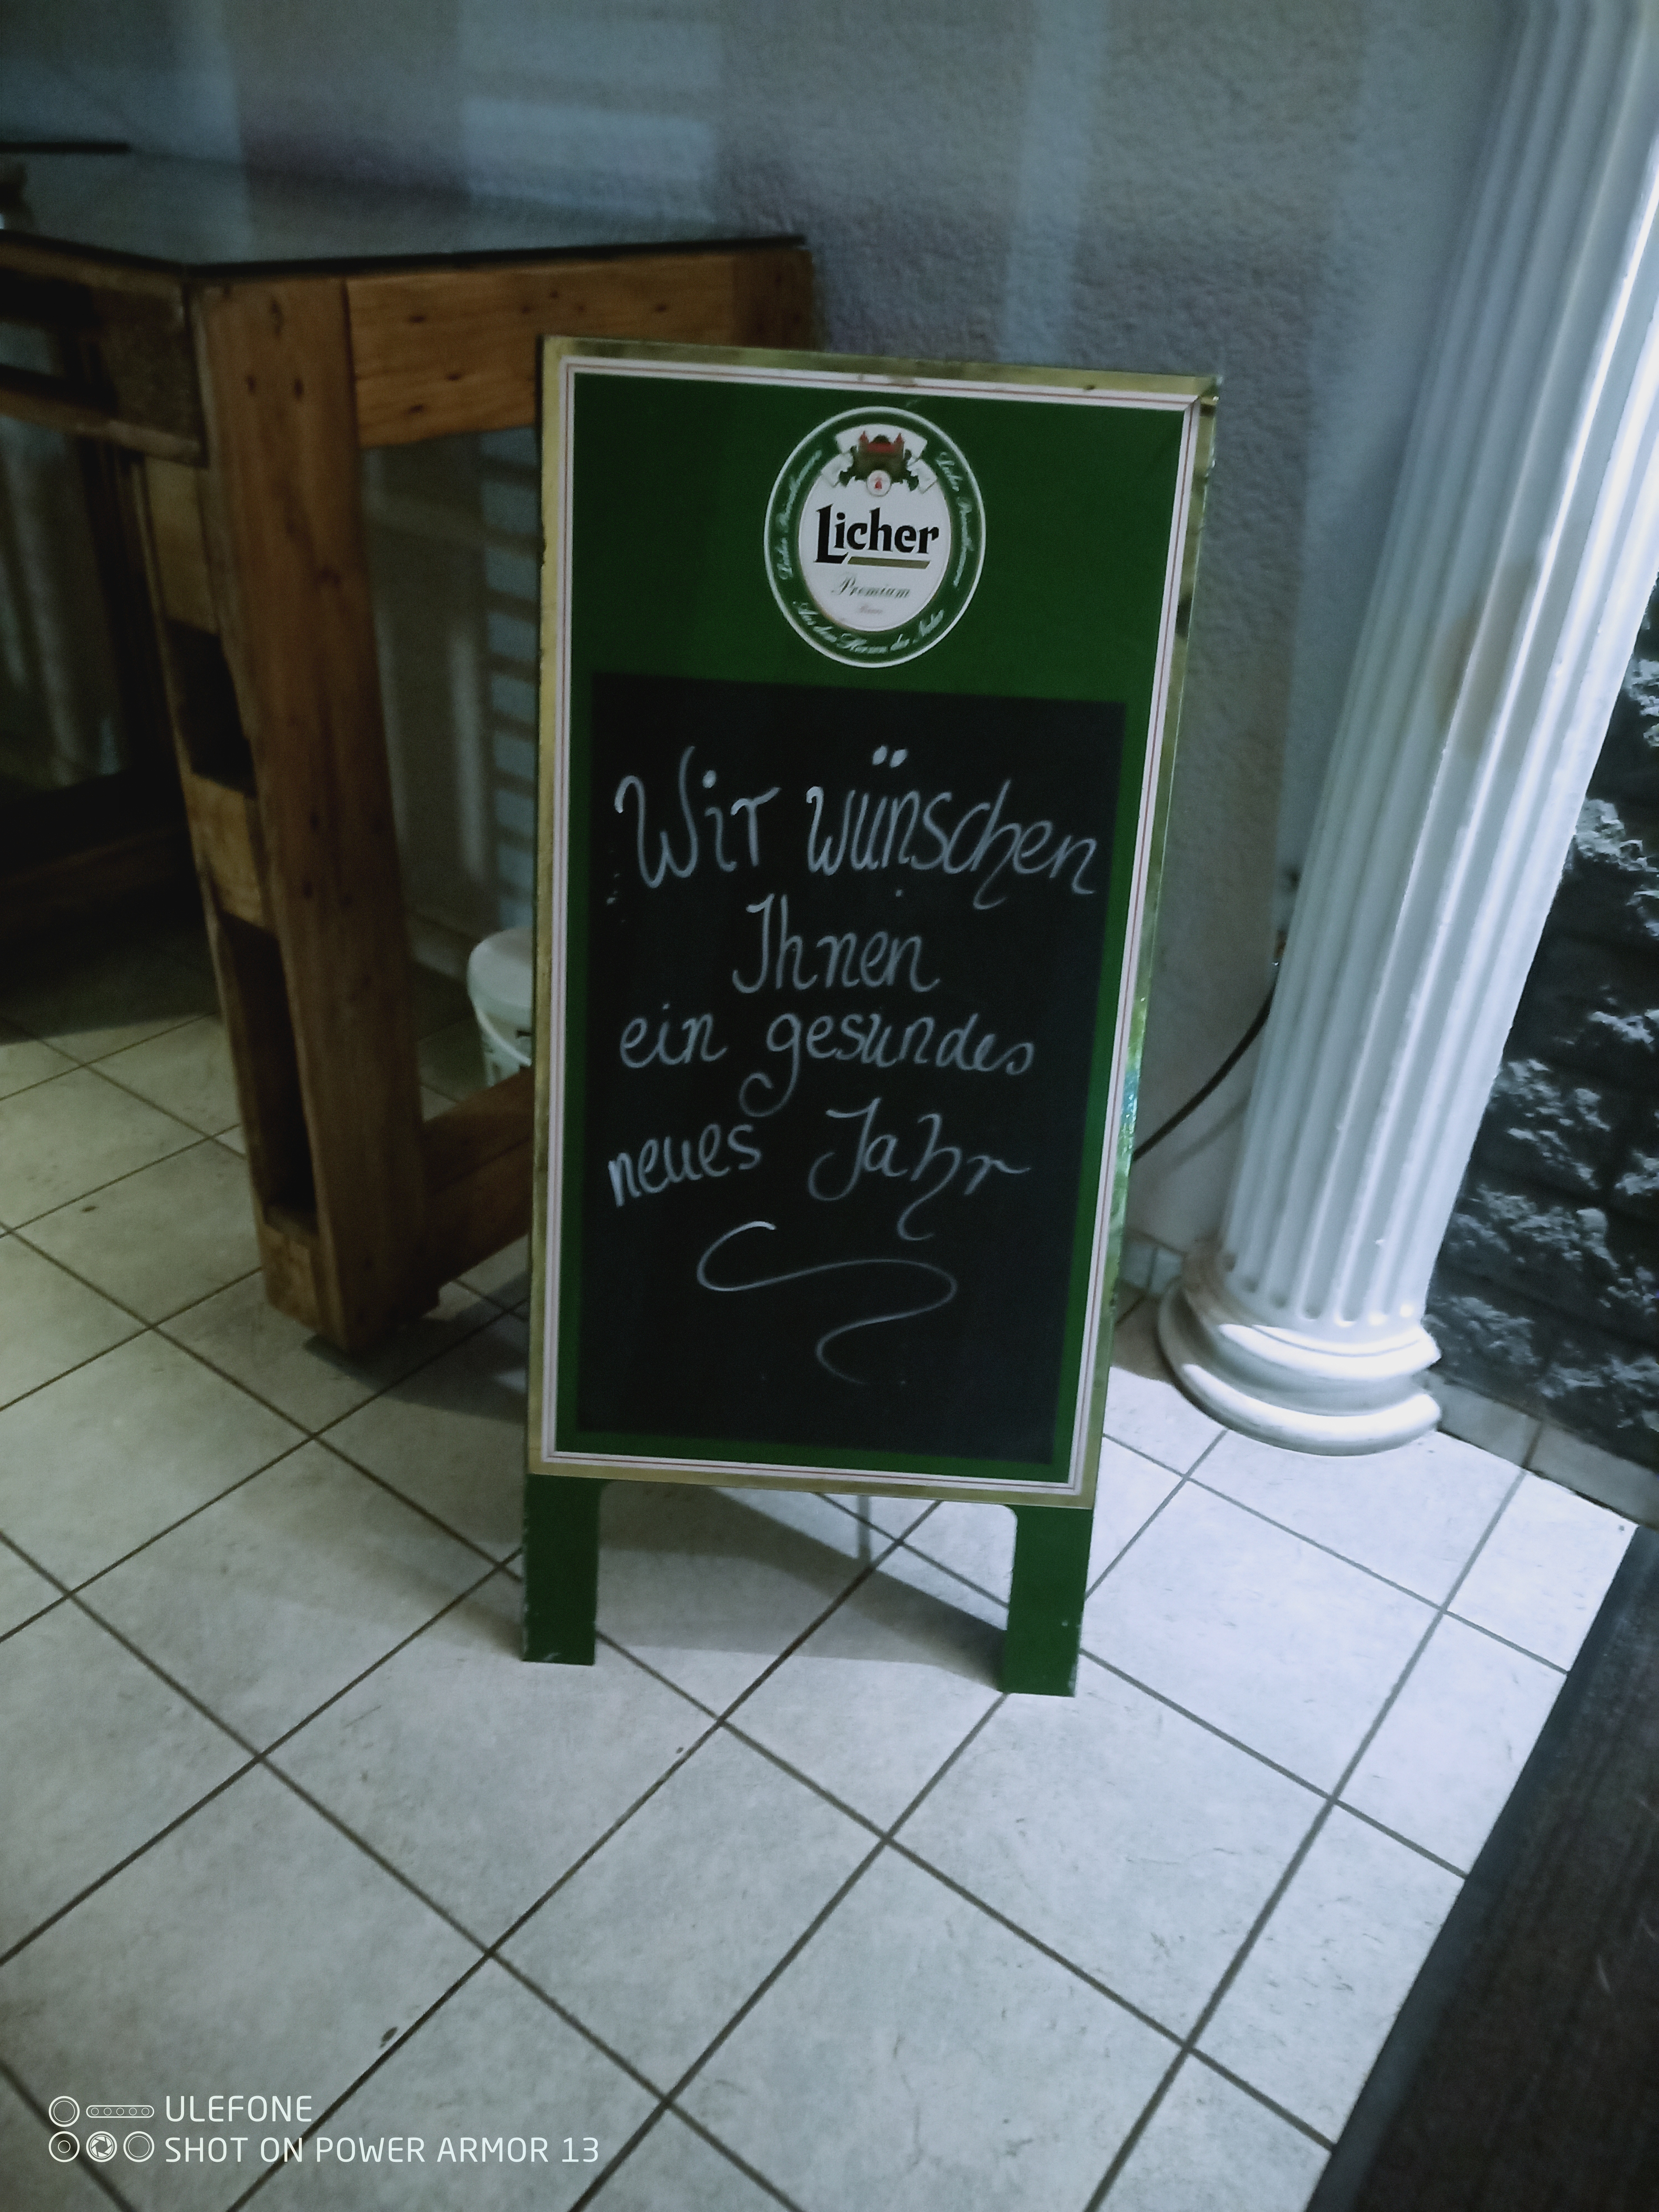 Licher
Premium
Aus dem Herzen der Natur
Wir wünschen
Ihnen
ein gesundes
neues Jahr
ULEFONE
SHOT ON POWER ARMOR 13